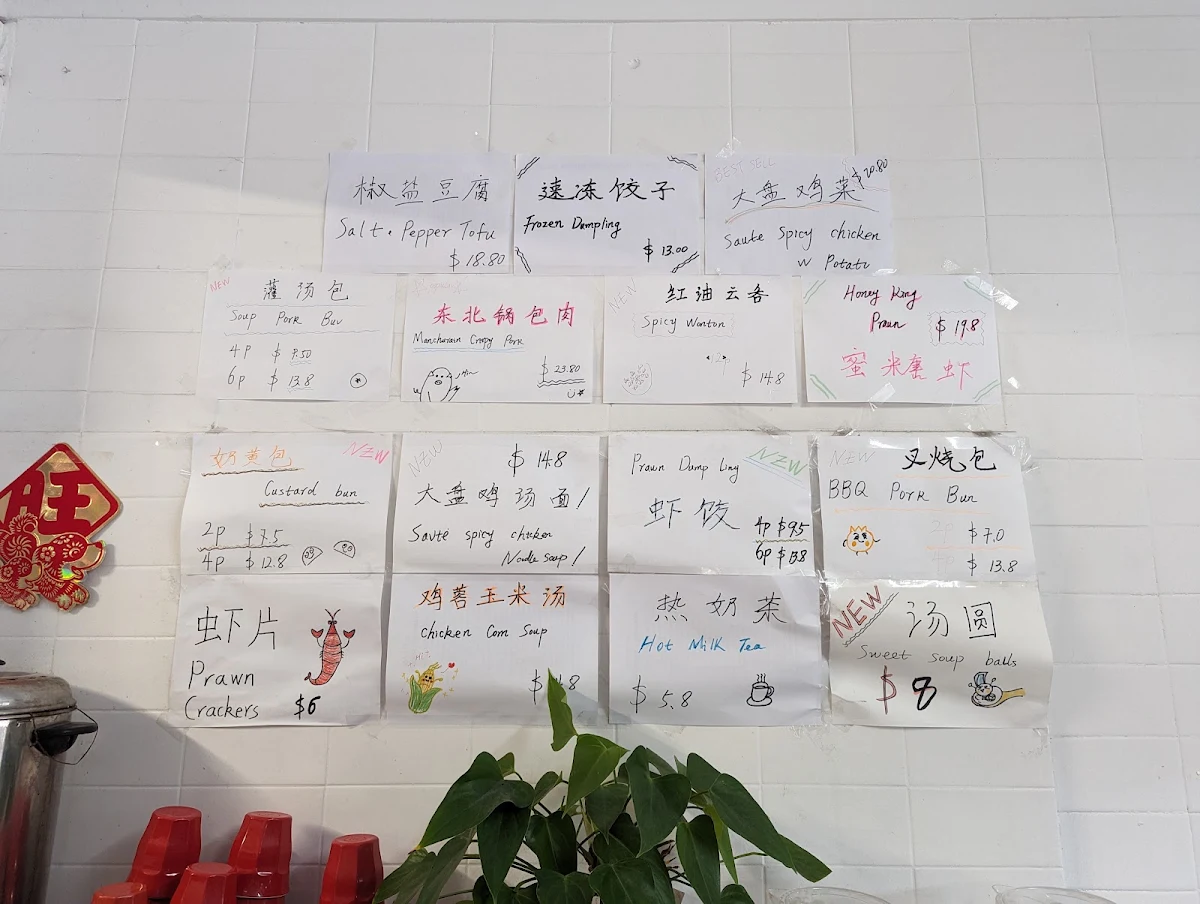 椒盐豆腐
Salt. Pepper Tofu
$18.80
速冻饺子
Frozen Dumpling
$13.00
BEST SELL
$20.80
大盘鸡菜
Saute Spicy chicken
w Potato
NEW
灌汤包
Soup Pork Bun
4P $9.50
6P $13.8
东北锅包肉
Manchurain Crispy Pork
$23.80
NEW
红油云吞
Spicy Wonton
$14.8
Honey King
Praun
$19.8
蜜 虾
奶黄包
NEW
Custard bun
2P $7.5
4P $12.8
NEW
$14.8
大盘鸡汤面
Saute spicy chicken
Noodle soup
Praun Dumpling
NEW
虾饺
4P $9.5
6P $13.8
NEW
叉烧包
BBQ Pork Bun
2P $7.0
$13.8
虾片
Prawn
Crackers $6
鸡蓉玉米汤
chicken Corn Soup
热奶茶
Hot Milk Tea
$5.8
NEW
汤圆
Sweet soup balls
$8
旺